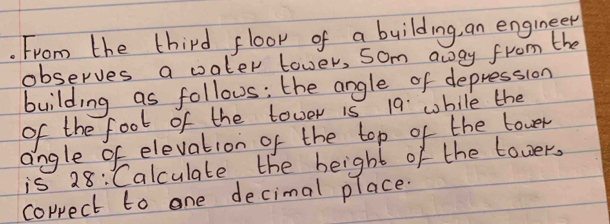 . From the third floor of a building, an engineer
observes a water tower, 50m away from the
building as follows: the angle of depression
of the foot of the tower is 19° while the
angle of elevation of the top of the tower
is 28°. Calculate the height of the tower,
correct to one decimal place.